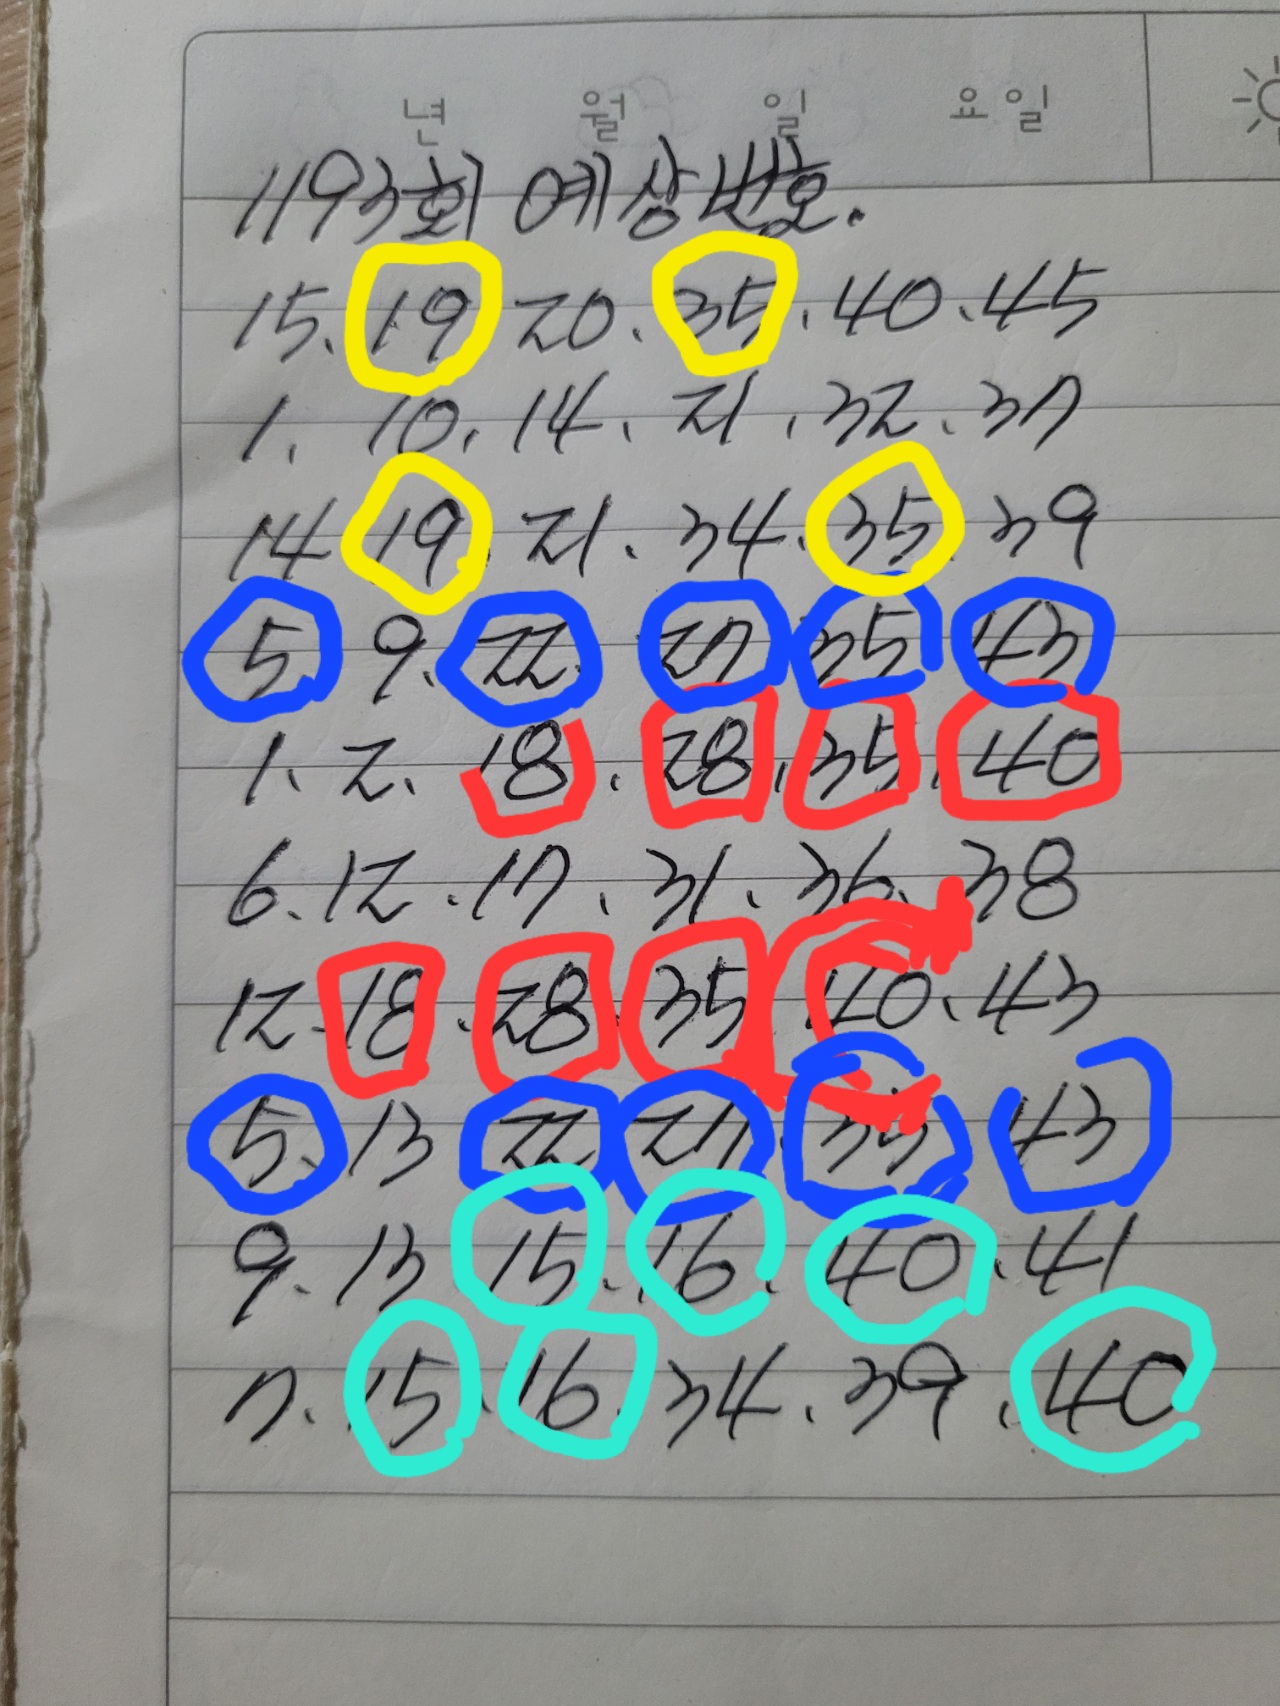 년 월 일 요일
1193회 예상번호.
15. 19 20. 35. 40. 45
1. 10. 14. 21. 32. 37
14 19. 21. 34. 35. 39
5. 9. 22. 27 35 43
1. 2. 18. 28. 35. 40
6. 12. 17. 31. 36. 38
12. 18. 28. 35 40. 43
5. 13 22 27 35 43
9. 13 15. 16. 40. 41
7. 15. 16. 34. 39. 40